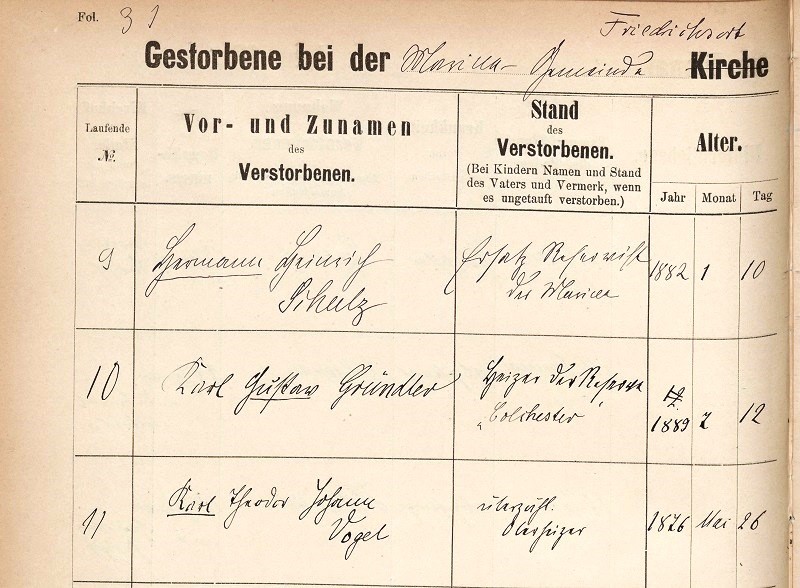 Fol. 31
Friedrichsort
Gestorbene bei der Marine-Gemeinde Kirche
Laufende
№.
Vor- und Zunamen
des
Verstorbenen.
Stand
des
Verstorbenen.
(Bei Kindern Namen und Stand
des Vaters und Vermerk, wenn
es ungetauft verstorben.)
Alter.
Jahr Monat Tag
9 Hermann Heinrich Schulz
Ersatz Reservist
der Marine
1882 1 10
10 Karl Gustav Gründler
Heizer der Reserve
„Colchester"
1889 7 12
11 Karl Theodor Johann
Vogel
überzähl.
Oberheizer
1876 Mai 26